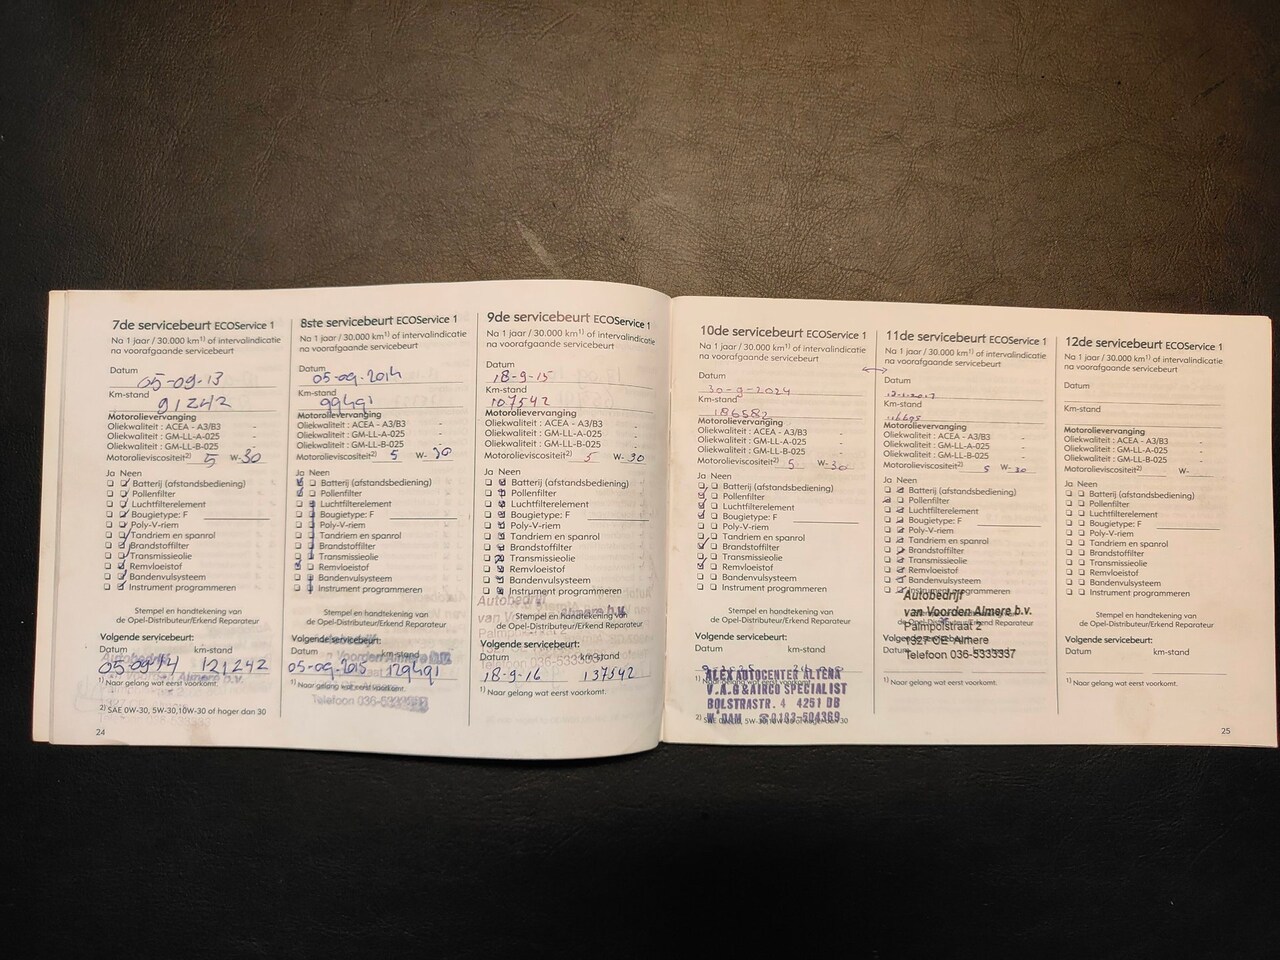 7de servicebeurt ECOService 1
Na 1 jaar / 30.000 km1) of intervalindicatie
na voorafgaande servicebeurt
Datum
05-09-13
Km-stand
91242
Motorolievervanging
Oliekwaliteit : ACEA - A3/B3 -
Oliekwaliteit : GM-LL-A-025 -
Oliekwaliteit : GM-LL-B-025 -
Motorolieviscositeit2) 5 W-30
Ja Neen
Batterij (afstandsbediening)
Pollenfilter
Luchtfilterelement
Bougietype: F
Poly-V-riem
Tandriem en spanrol
Brandstoffilter
Transmissieolie
Remvloeistof
Bandenvulsysteem
Instrument programmeren
Stempel en handtekening van
de Opel-Distributeur/Erkend Reparateur
Volgende servicebeurt:
Datum km-stand
05-09-14 121242
1) Naar gelang wat eerst voorkomt.
2) SAE 0W-30, 5W-30,10W-30 of hoger dan 30
24
8ste servicebeurt ECOService 1
Na 1 jaar / 30.000 km1) of intervalindicatie
na voorafgaande servicebeurt
Datum
05-09-2014
Km-stand
99491
Motorolievervanging
Oliekwaliteit : ACEA - A3/B3 -
Oliekwaliteit : GM-LL-A-025 -
Oliekwaliteit : GM-LL-B-025 -
Motorolieviscositeit2) 5 W- 30
Ja Neen
Batterij (afstandsbediening)
Pollenfilter
Luchtfilterelement
Bougietype: F
Poly-V-riem
Tandriem en spanrol
Brandstoffilter
Transmissieolie
Remvloeistof
Bandenvulsysteem
Instrument programmeren
Stempel en handtekening van
de Opel-Distributeur/Erkend Reparateur
Volgende servicebeurt:
Datum km-stand
05-09-2015 129491
1) Naar gelang wat eerst voorkomt.
Telefoon 036-5333337
9de servicebeurt ECOService 1
Na 1 jaar / 30.000 km1) of intervalindicatie
na voorafgaande servicebeurt
Datum
18-9-15
Km-stand
107542
Motorolievervanging
Oliekwaliteit : ACEA - A3/B3 -
Oliekwaliteit : GM-LL-A-025 -
Oliekwaliteit : GM-LL-B-025 -
Motorolieviscositeit2) 5 W- 30
Ja Neen
Batterij (afstandsbediening)
Pollenfilter
Luchtfilterelement
Bougietype: F
Poly-V-riem
Tandriem en spanrol
Brandstoffilter
Transmissieolie
Remvloeistof
Bandenvulsysteem
Instrument programmeren
Autobedrijf
Stempel en handtekening van
de Opel-Distributeur/Erkend Reparateur
Volgende servicebeurt:
Datum km-stand
18-9-16 137542
1) Naar gelang wat eerst voorkomt.
10de servicebeurt ECOService 1
Na 1 jaar / 30.000 km1) of intervalindicatie
na voorafgaande servicebeurt
Datum
30-9-2024
Km-stand
186582
Motorolievervanging
Oliekwaliteit : ACEA - A3/B3 -
Oliekwaliteit : GM-LL-A-025 -
Oliekwaliteit : GM-LL-B-025 -
Motorolieviscositeit2) 5 W-30
Ja Neen
Batterij (afstandsbediening)
Pollenfilter
Luchtfilterelement
Bougietype: F
Poly-V-riem
Tandriem en spanrol
Brandstoffilter
Transmissieolie
Remvloeistof
Bandenvulsysteem
Instrument programmeren
Stempel en handtekening van
de Opel-Distributeur/Erkend Reparateur
Volgende servicebeurt:
Datum km-stand
ALEX AUTOCENTER ALTENA
V.A.G & AIRCO SPECIALIST
BOLSTRASTR. 4 4251 DB
W'DAM ☎ 0183-504369
11de servicebeurt ECOService 1
Na 1 jaar / 30.000 km1) of intervalindicatie
na voorafgaande servicebeurt
Datum
Km-stand
Motorolievervanging
Oliekwaliteit : ACEA - A3/B3 -
Oliekwaliteit : GM-LL-A-025 -
Oliekwaliteit : GM-LL-B-025 -
Motorolieviscositeit2) 5 W- 30
Ja Neen
Batterij (afstandsbediening)
Pollenfilter
Luchtfilterelement
Bougietype: F
Poly-V-riem
Tandriem en spanrol
Brandstoffilter
Transmissieolie
Remvloeistof
Bandenvulsysteem
Instrument programmeren
Autobedrijf
van Voorden Almere b.v.
de Opel-Distributeur/Erkend Reparateur
Palmpolstraat 2
1327 CE Almere
Datum km-stand
Telefoon 036-5333337
1) Naar gelang wat eerst voorkomt.
12de servicebeurt ECOService 1
Na 1 jaar / 30.000 km1) of intervalindicatie
na voorafgaande servicebeurt
Datum
Km-stand
Motorolievervanging
Oliekwaliteit : ACEA - A3/B3 -
Oliekwaliteit : GM-LL-A-025 -
Oliekwaliteit : GM-LL-B-025 -
Motorolieviscositeit2) W-
Ja Neen
Batterij (afstandsbediening)
Pollenfilter
Luchtfilterelement
Bougietype: F
Poly-V-riem
Tandriem en spanrol
Brandstoffilter
Transmissieolie
Remvloeistof
Bandenvulsysteem
Instrument programmeren
Stempel en handtekening van
de Opel-Distributeur/Erkend Reparateur
Volgende servicebeurt:
Datum km-stand
1) Naar gelang wat eerst voorkomt.
25